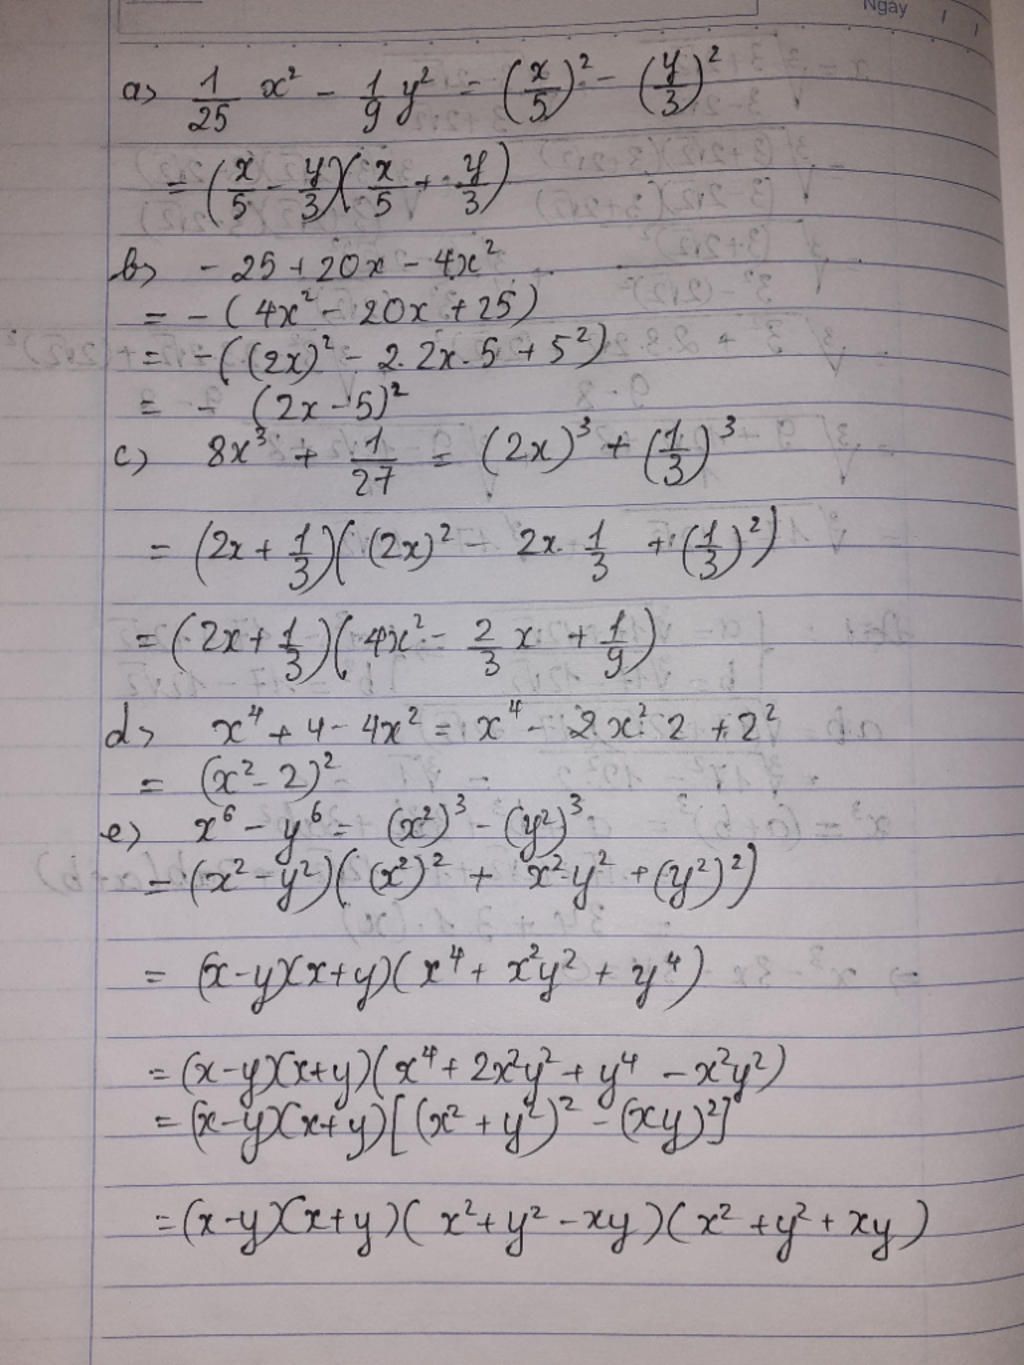 Ngày / /
a) 1/25 x² - 1/9 y² = (x/5)² - (y/3)²
= (x/5 - y/3)(x/5 + y/3)
b) - 25 + 20x - 4x²
= - (4x² - 20x + 25)
= - ((2x)² - 2.2x.5 + 5²)
= - (2x - 5)²
c) 8x³ + 1/27 = (2x)³ + (1/3)³
= (2x + 1/3)((2x)² - 2x. 1/3 + (1/3)²)
= (2x + 1/3)(4x² - 2/3 x + 1/9)
d) x⁴ + 4 - 4x² = x⁴ - 2.x².2 + 2²
= (x² - 2)²
e) x⁶ - y⁶ = (x²)³ - (y²)³
= (x² - y²)((x²)² + x².y² + (y²)²)
= (x-y)(x+y)(x⁴ + x²y² + y⁴)
= (x-y)(x+y)(x⁴ + 2x²y² + y⁴ - x²y²)
= (x-y)(x+y)[(x² + y²)² - (xy)²]
= (x-y)(x+y)(x² + y² - xy)(x² + y² + xy)